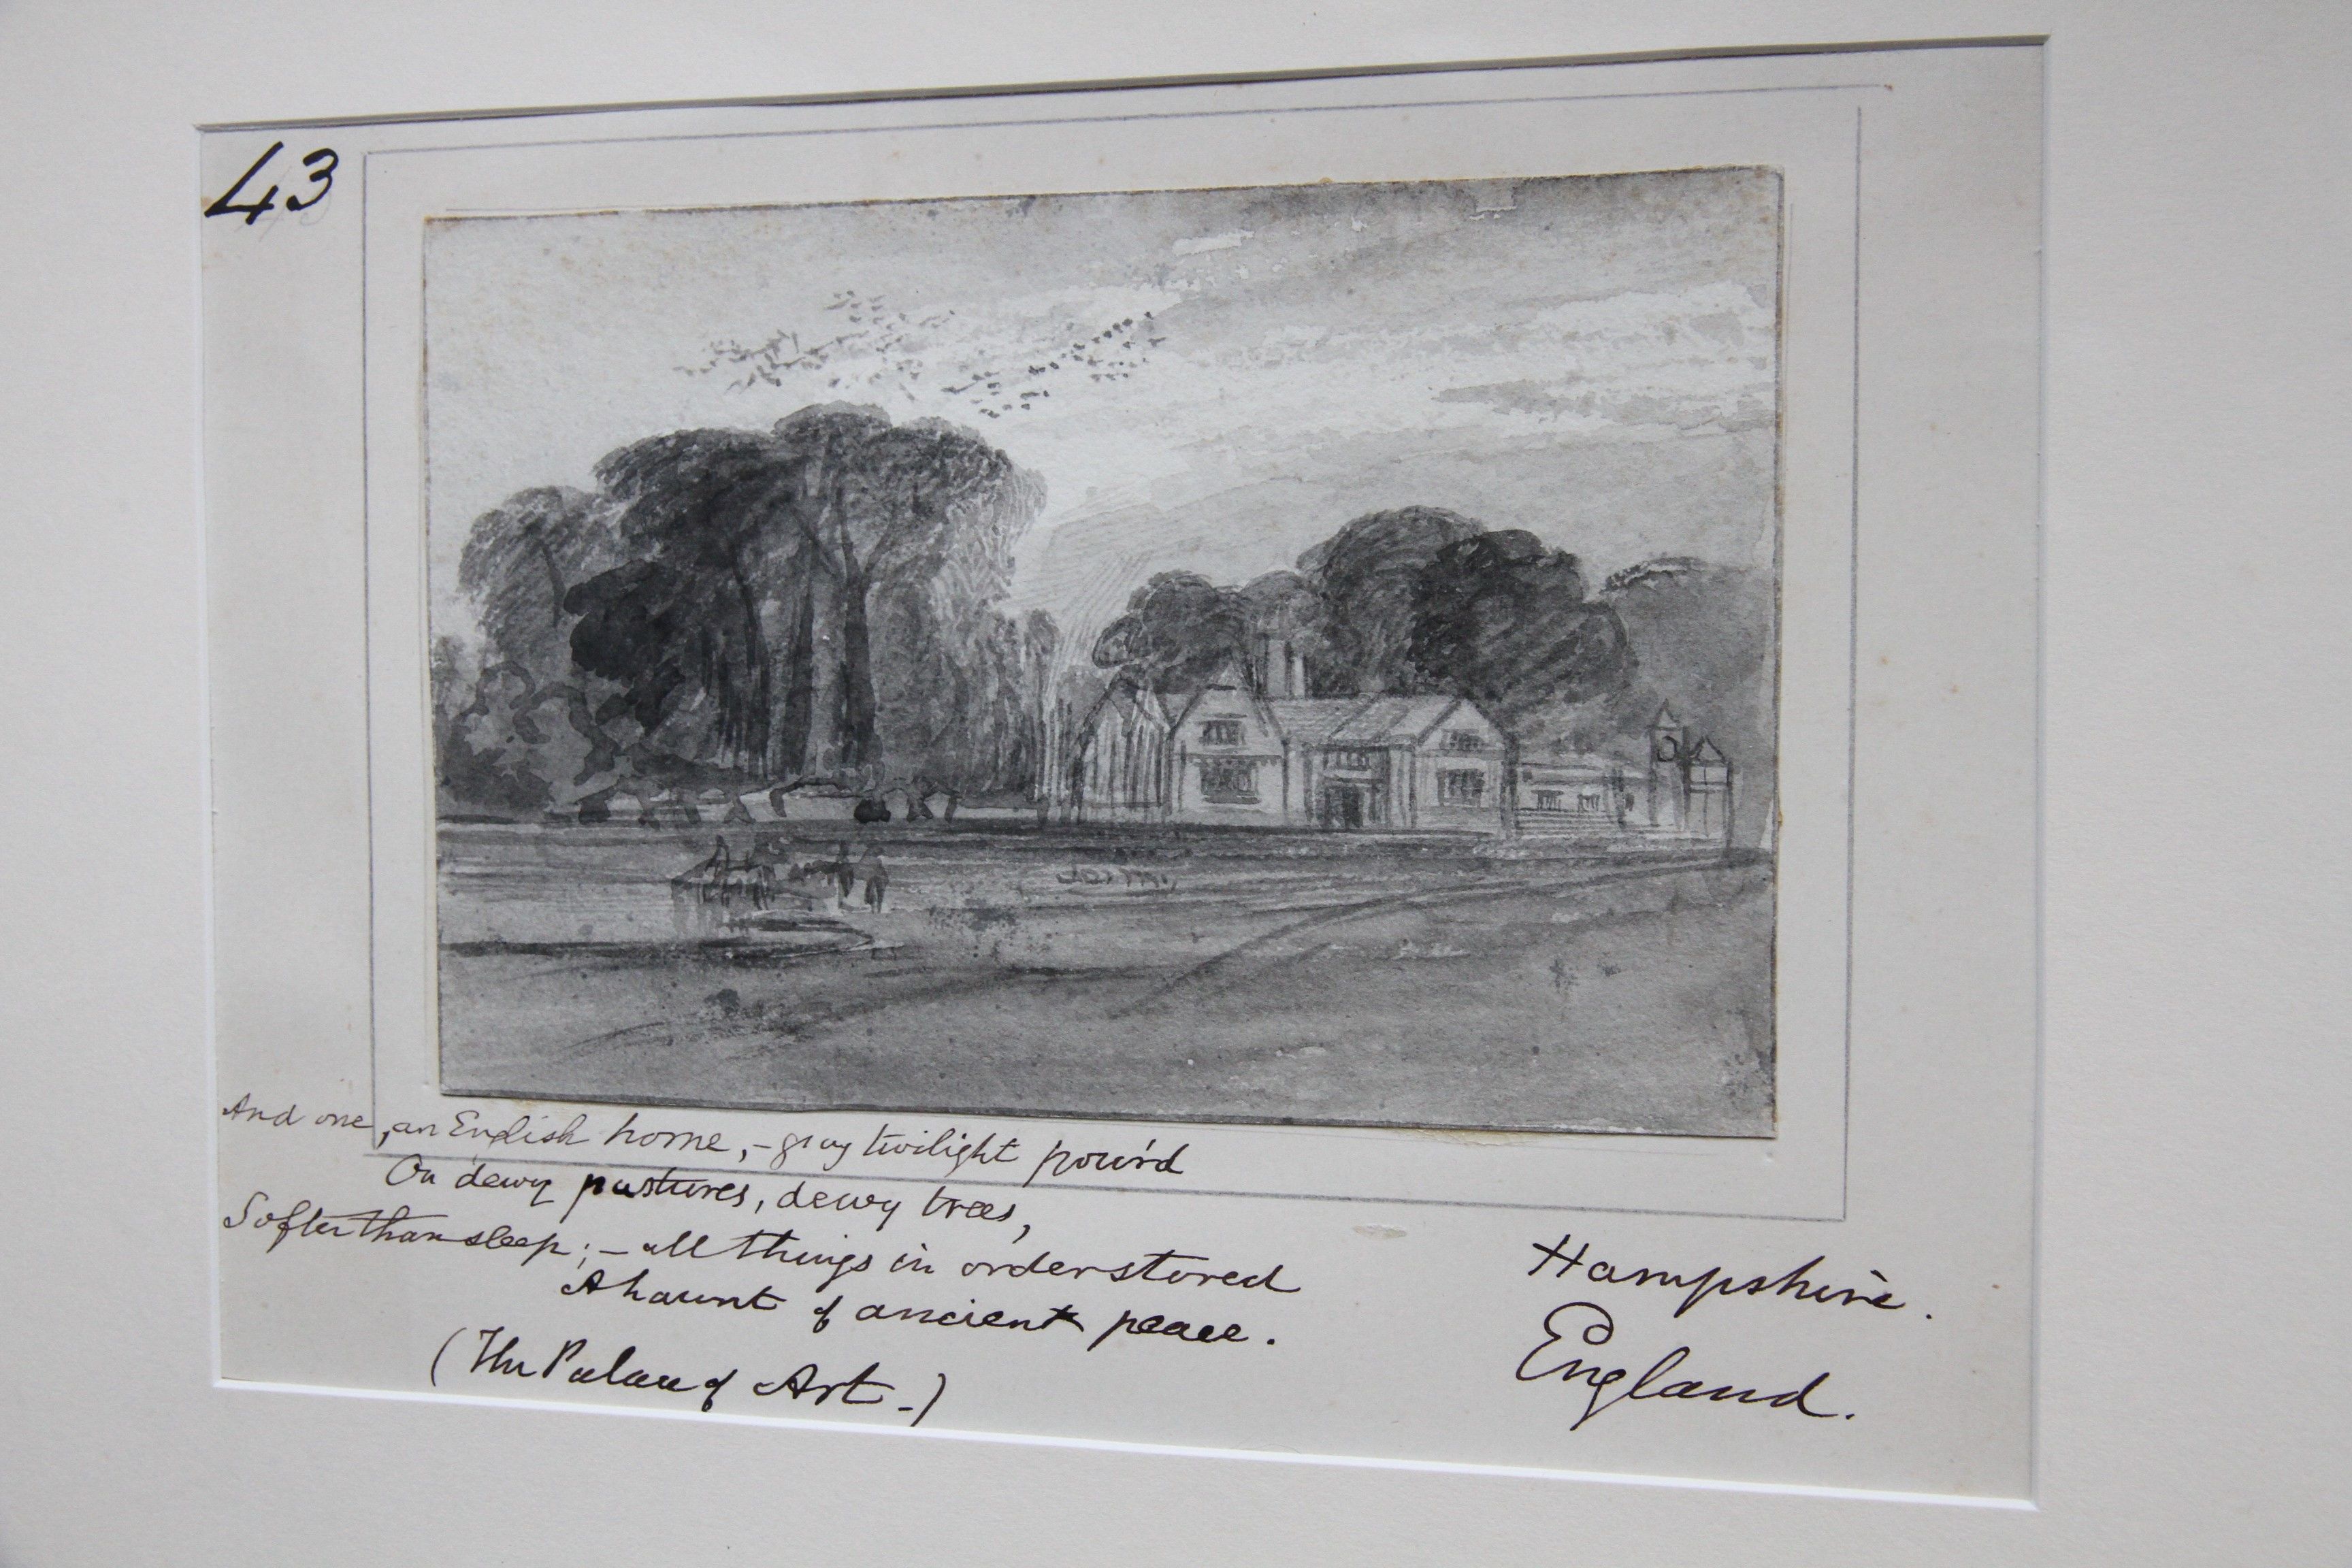 43
And one, an English home, – gray twilight pour'd
On dewy pastures, dewy trees,
Softer than sleep; – all things in order stored
A haunt of ancient peace.
(The Palace of Art –)
Hampshire.
England.